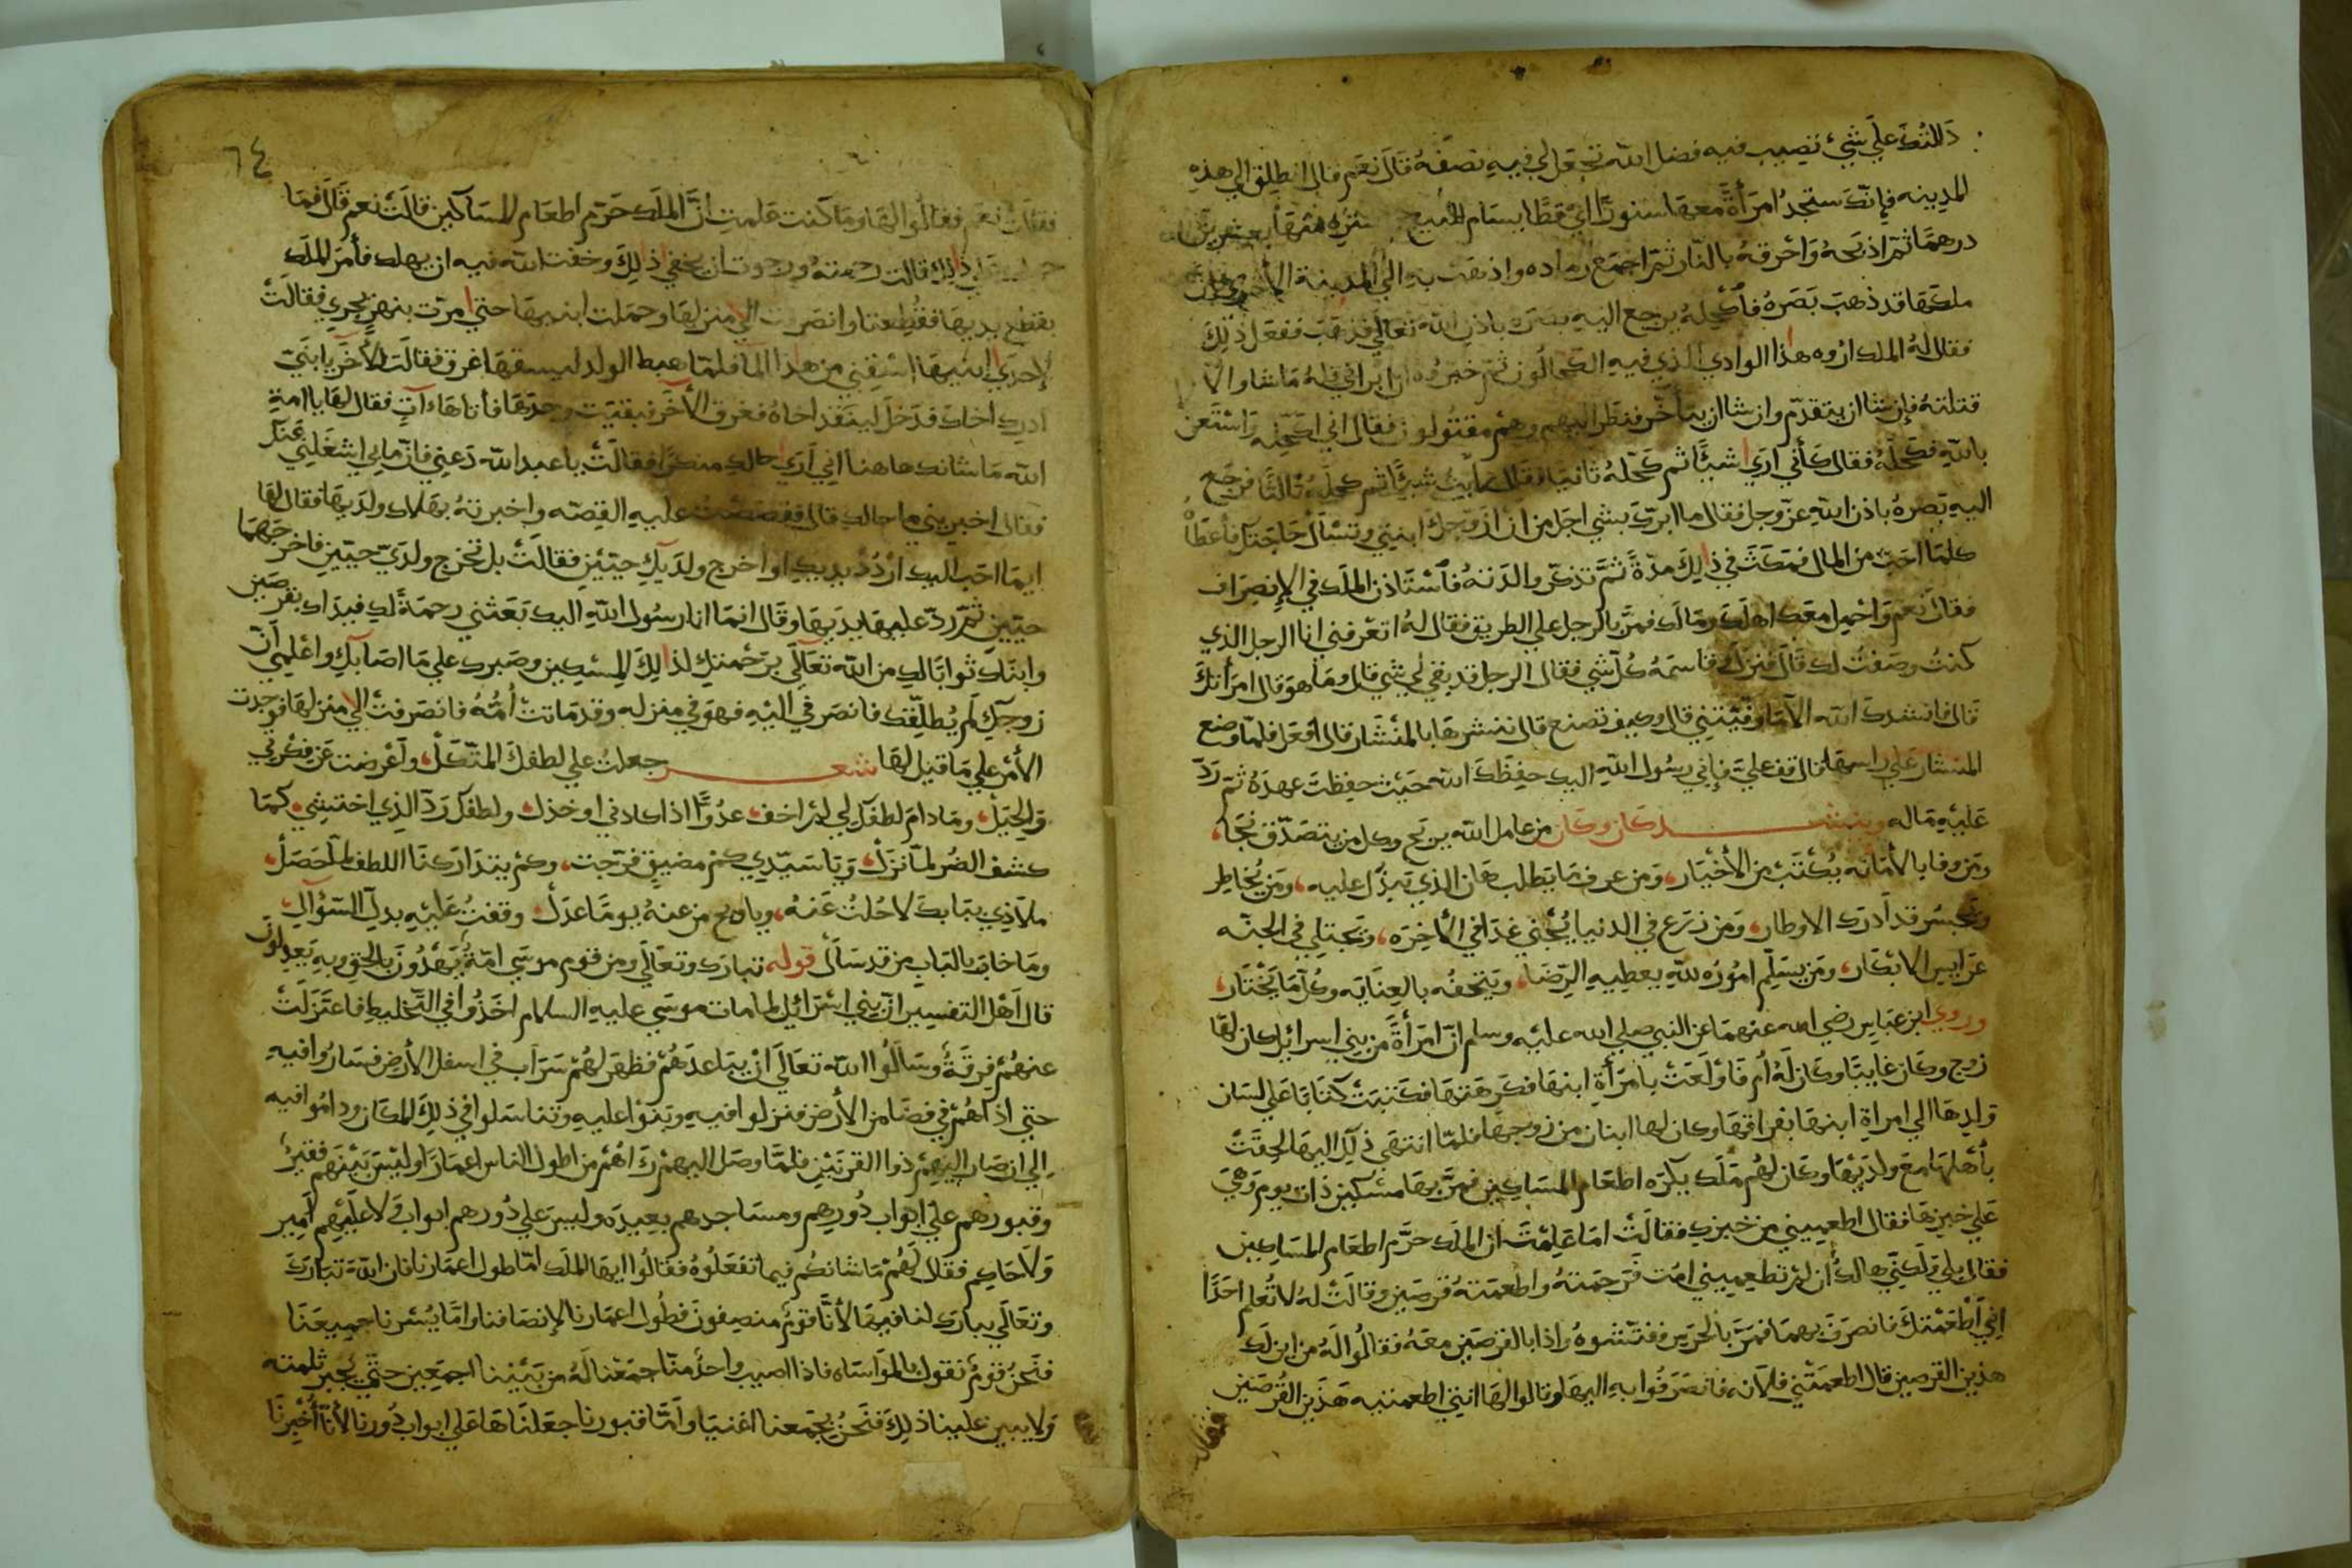 دللتك علي شيء تصيب فيه فضل الله تجعل لي فيه نصفه قال نعم قال انطلق الي هذه
المدينه فإنك ستجد امرأة معها سنورًا اي قطًا بسام للبيع فاشتره منها بعشرين
درهما ثم اذبحه واحرقه بالنار ثم اجمع رماده واذهب به الي المدينة الأخري فان
ملكها قد ذهب بصره فاكحله يرجع اليه بصره باذن الله تعالي فذهب ففعل ذلك
فقال له الملك اروه هذا الوادي الذي فيه الكحالون ثم خبروه ان ابراني فله ما شا والا
قتلته فإن شا ان يتقدم وان شا ان يتأخر فنظر اليهم وهم مقتولون فقال اني اكحله واستعن
بالله فكحله فقال كأني اري شيئًا ثم كحله ثانيا فقال رأيت شيئًا ثم كحله ثالثًا فرجع
اليه بصره باذن الله عز وجل فقال ما ابرك بشي اجل من ان ازوجك ابنتي وتسأل حاجتك فأعطاه
كلما احب من المال فمكث في ذلك مدة ثم تذكر والدته فاستاذن الملك في الإنصراف
فقال نعم واحمل معك اهلك ومالك فمر بالرجل علي الطريق فقال له اتعرفني انا الرجل الذي
كنت وصفت لك قال فنزل وقاسمه كل شي فقال الرجل قد بقي لي شي قال وما هو قال امرأتك
قال فانشدك الله الا ما وفيتني قال وكيف تصنع قال ننشرها بالمنشار قال افعل فلما وضع
المنشار علي راسها قال قف علي فإني رسول الله اليك حفظك الله حيث حفظت عهده ثم رد
عليه ماله وينشد كان وكان من عامل الله يربح وكل من يتصدق نجا،
ومن وفا بالأمانه يكتب من الأخيار، ومن عرف ما يطلب هان الذي يبذل عليه، ومن يخاطر
ويجسر قد أدرك الاوطار، ومن زرع في الدنيا يجني غدا في الأخره، ويجتلي في الجنه
عرايس الابكار، ومن يسلم اموره لله يعطيه الرضا، ويتحفه بالعنايه وكل ما يختار،
وروي ابن عباس رضي الله عنهما عن النبي صلي الله عليه وسلم ان امرأة من بني اسرائيل كان لها
زوج وكان غايبًا وكان له أم فأولعت بامرأة ابنها فكرهتها فكتبت كتابًا علي لسان
ولدها الي امراة ابنها بفراقها وكان لها ابنان من زوجها فلما انتهي ذلك اليها لحقت
بأهلها مع ولديها وكان لهم ملك يكره اطعام المساكين فمر بها مسكين ذات يوم وهي
علي خبزها فقال اطعميني من خبزك فقالت اما علمت ان الملك حرم اطعام المساكين
فقال بلي ولكني هالك ان لم تطعميني امت فرحمته واطعمته قرصين وقالت له لا تعلم احدًا
اني أطعمتك فانصرف بهما فمر بالحرس ففتشوه واذا بالقرصين معه فقالوا له من اين لك
هذين القرصين قال اطعمتني فلانه فانصرفوا به اليها وقالوا لها انتي اطعمتيه هذين القرصين
فقالت
٦٤
فقالت نعم فقالوا لها وما كنت علمت ان الملك حرم اطعام المساكين قالت نعم قال فما
حملك علي ذلك قالت رحمته ورجوت ان يخفي ذلك وخفت الله فيه ان يهلك فأمر الملك
بقطع يديها فقطعتا وانصرفت الي منزلها وحملت ابنيها حتي مرت بنهر يجري فقالت
لإحدي ابنيها اسقني من هذا الما فلما هبط الولد ليسقها غرق فقالت للأخر يا ابني
ادرك اخاك فدخل لينقذ اخاه فغرق الأخر فبقيت وحدها فأتاها ءات فقال لها يا امة
الله ما شانك هاهنا اني اري حالك منكرًا فقالت يا عبد الله دعني فان ما بي اشغلني عنك
فقال اخبريني ما حالك قال فقصصت عليه القصه واخبرته بهلاك ولديها فقال لها
ايما احب اليك اردد يديك او اخرج ولديك حيين فقالت بل تخرج ولدي حيين فاخرجهما
حيين ثم رد عليها يديها وقال انما انا رسول الله اليك بعثني رحمة لك فيداك بقرصين
وابناك ثوابًا لك من الله تعالي برحمتك لذلك المسكين وصبرك علي ما اصابك واعلمي ان
زوجك لم يطلقك فانصرفي اليه فهو في منزله وقد ماتت أمه فانصرفت الي منزلها فوجدت
الأمر علي ما قيل لها شعر جعلت علي لطفك المتكل، واعرضت عن فكرتي
والحيل، وما دام لطفك لي لم اخف، عدوًا اذا كادني او خذل، ولطفك رد الذي اختشي، كما
كشف الضر لما نزل، ويا سيدي كم مضيق فرجت، وكم يتدارك اللطف لما حصل،
ملاذي ببابك لا حلت عنه، ويا ويح من عنه يومًا عدل، وقفت عليه بذل السؤال،
وما خاب بالباب من قد سأل قوله تبارك وتعالي ومن قوم موسي امة يهدون بالحق وبه يعدلون
قال أهل التفسير ان بني اسرائيل لما مات موسي عليه السلام اخذوا في التخليط فاعتزلت
عنهم فرقة وسألوا الله تعالي ان يباعدهم فظهر لهم سراب في اسفل الأرض فساروا فيه
حتي اذا هم في فضا من الأرض فنزلوا فيه وبنوا عليه وتناسلوا في ذلك المكان وداموا فيه
الي ان صار اليهم ذوا القرنين فلما وصل اليهم رءاهم من اطول الناس اعمارًا وليس بينهم فقير
وقبورهم علي ابواب دورهم ومساجدهم بعيده وليس علي دورهم ابواب ولا عليهم امير
ولا حاكم فقال لهم ما شانكم فيما تفعلوه فقالوا ايها الملك اما طول اعمارنا فان الله تبارك
وتعالي يبارك لنا فيها لأنا قوم منصفون فطول اعمارنا لإنصافنا واما يسرنا جميعنا
فنحن قوم نقول بالمواساه فاذا اصيب واحد منا جمعنا له من بيننا اجمعين حتي يجبر ثلمته
ولا يبين علينا ذلك فنحن بجمعنا اغنيا واما قبورنا جعلناها علي ابواب دورنا لأنا أخبرنا